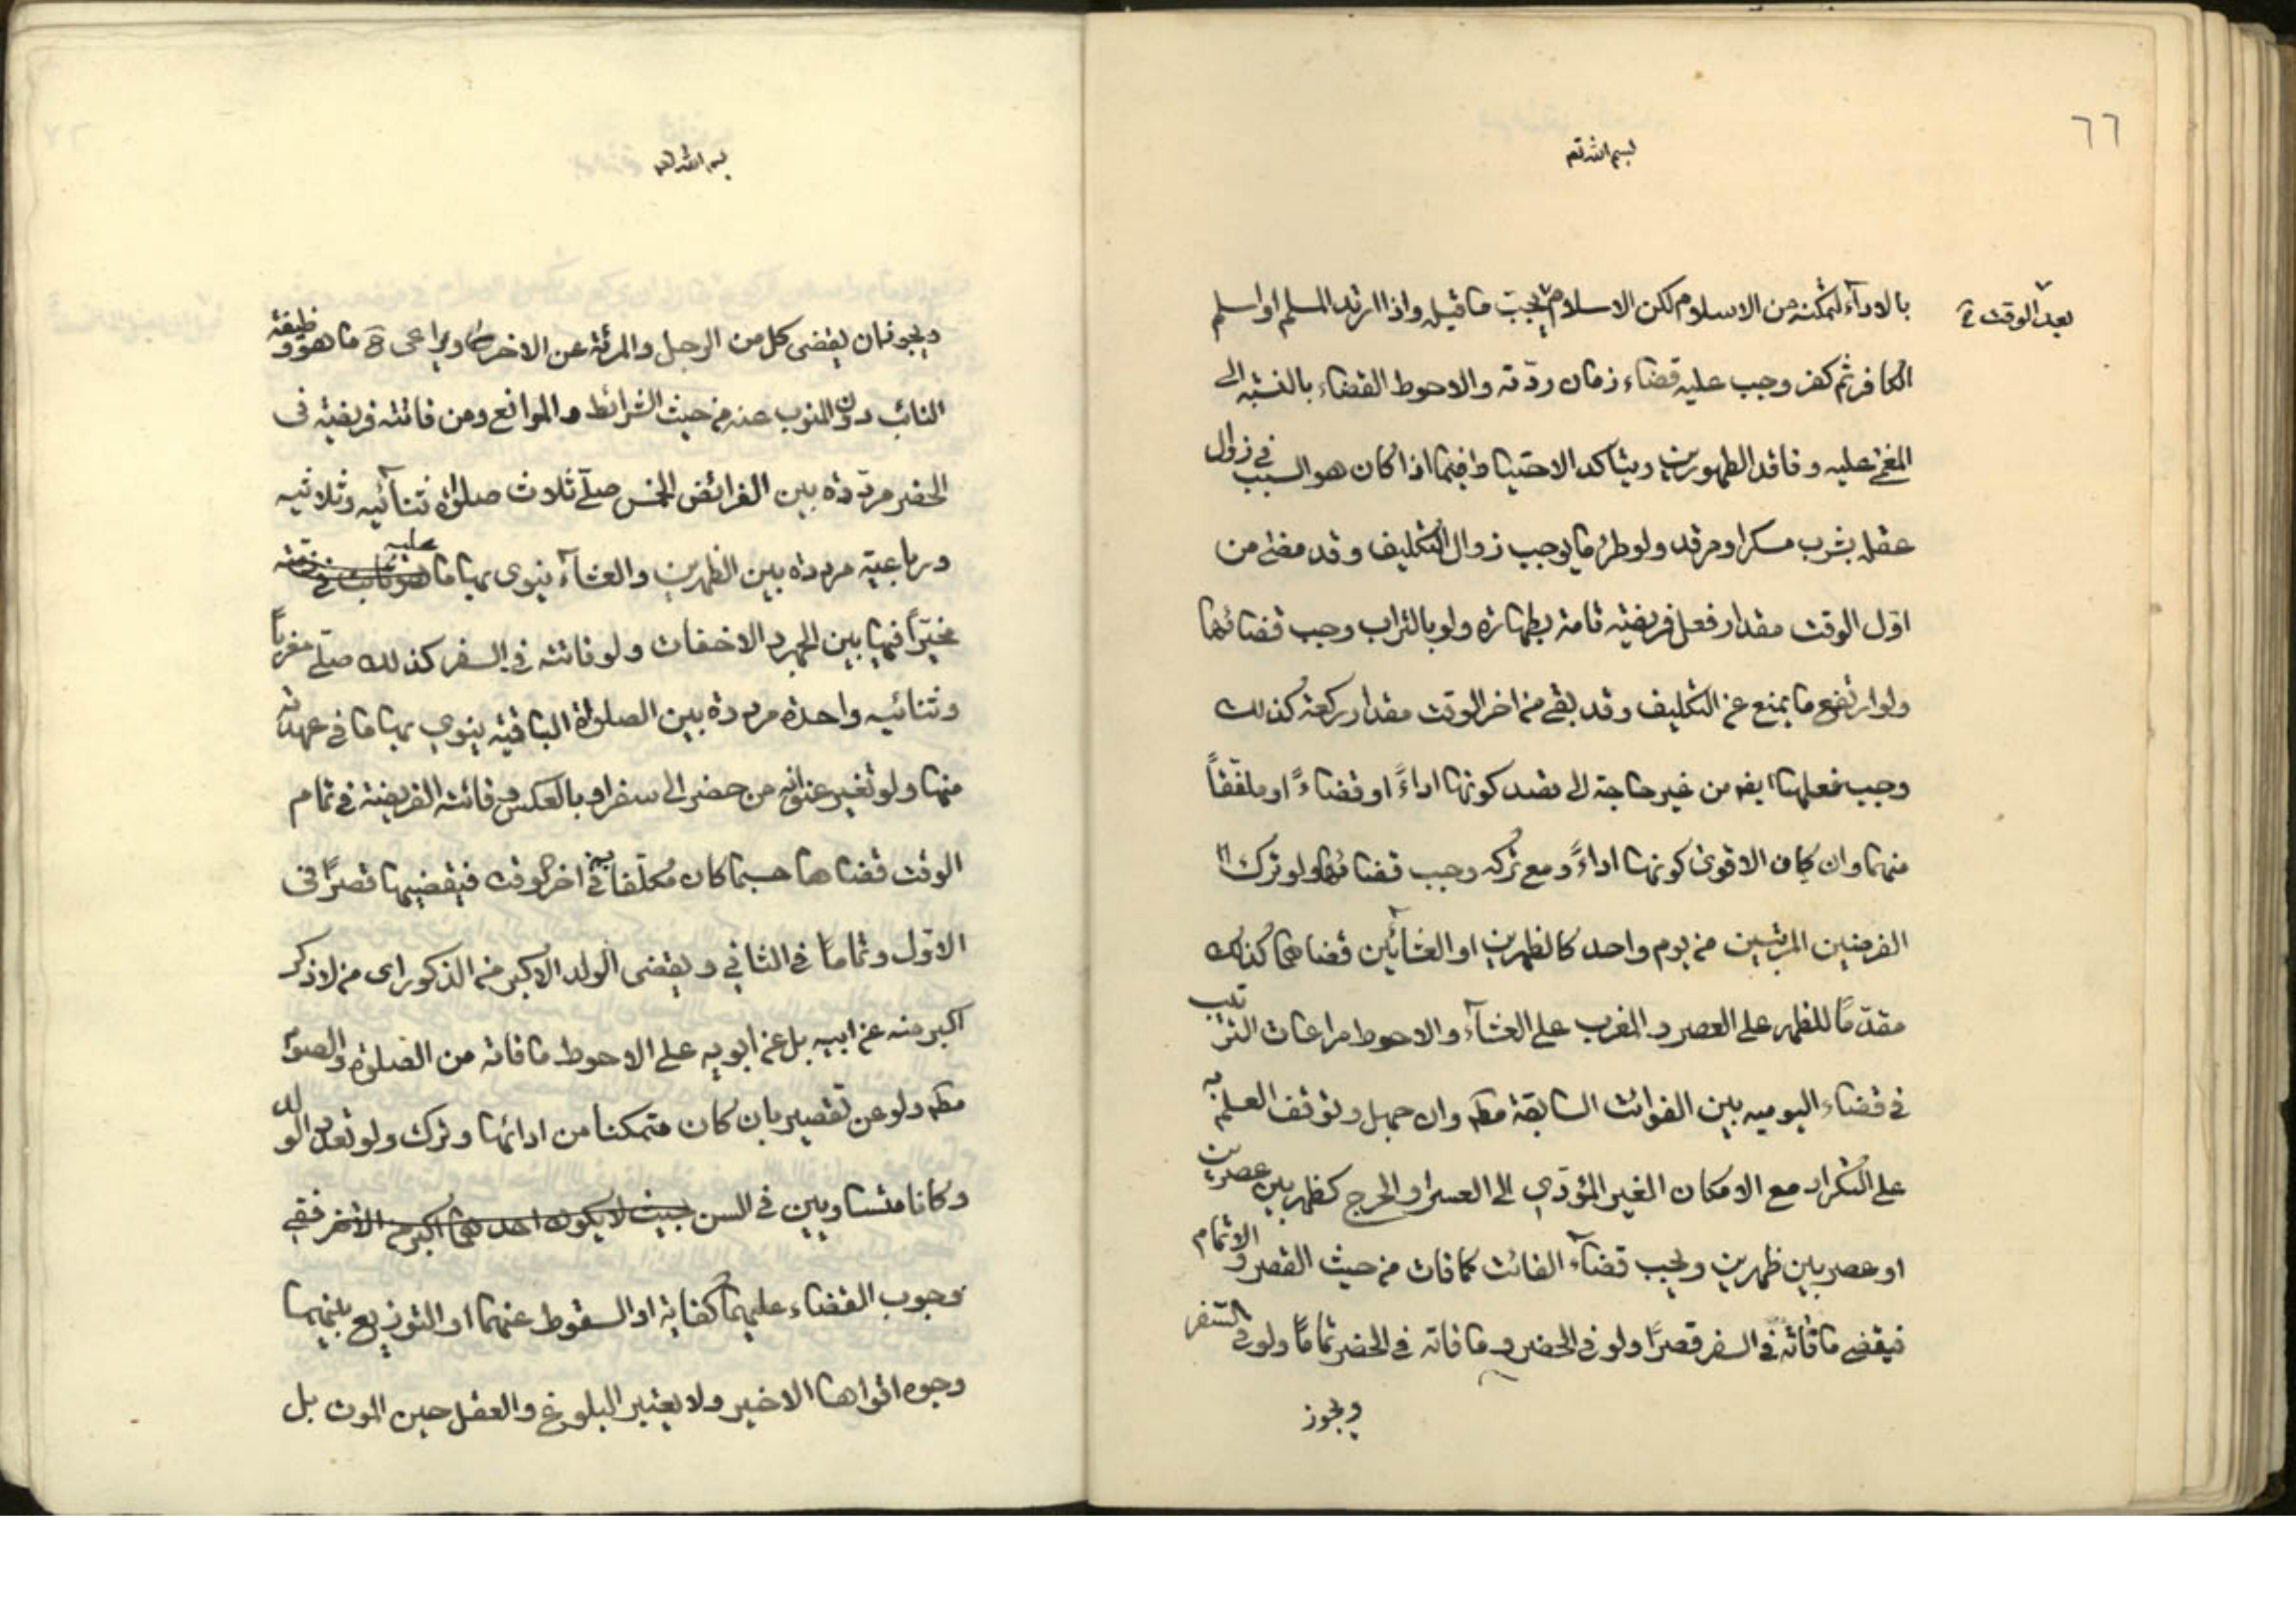 ٦٦
بسم الله تع
بعد الوقت
بالاداء لتمكنه من الاسلام لكن الاسلام يجب ما قبله واذا ارتد المسلم او اسلم
الكافر ثم كفر وجب عليه قضاء زمان ردّته والاحوط القضاء بالنسبه الى
المغمى عليه و فاقد الطهورين ويتاكد الاحتياط فيما اذا كان هو السبب في زوال
عقله بشرب مسكر او مرقد ولو طرء ما يوجب زوال التكليف و قد مضى من
اوّل الوقت مقدار فعل فريضة تامة بطهارة ولو بالتراب وجب قضائها
ولو ارتفع ما يمنع عن التكليف و قد بقى من اخر الوقت مقدار ركعة كذلك
وجب فعلها ايضا من غير حاجة الى قصد كونها اداءً او قضاءً او ملفّقاً
منهما وان كان الاقوى كونها اداءً ومع تركه وجب قضاؤها ولو ترك
الفرضين المرتبين من يوم واحد كالظهرين او العشائين قضاهما كذلك
مقدّمًا للظهر على العصر و المغرب على العشاء والاحوط مراعات الترتيب
في قضاء اليوميه بين الفوائت السابقة مطم وان جهل وتوقف العلم به
على التكرار مع الامكان الغير المؤدّي الى العسر او الحرج كظهر بين عصرين
او عصر بين ظهرين ويجب قضاء الفائت كما فات من حيث القصر والاتمام
فيقضى ما فاته في السفر قصرًا ولو في الحضر و ما فاته في الحضر تمامًا ولو في السفر
ويجوز
بسم الله تع
ويجوز ان يقضى كل من الرجل والمرئة عن الاخر ويراعى ما هو وظيفة
النائب دون المنوب عنه من حيث الشرائط والموانع ومن فاتته فريضة في
الحضر مردّدة بين الفرائض الخمس صلّى ثلاث صلوات ثنائيه وثلاثيه
ورباعية مرددة بين الظهرين والعشاء ينوى بها ما عليه
مخيّراً فيها بين الجهر والاخفات ولو فاتته في السفر كذلك صلّى مغرباً
وثنائيه واحدة مرددة بين الصلوات الباقية ينوي بها ما في عهدته
منها ولو تغير عنوانه من حضر الى سفر او بالعكس و فاتته الفريضة في تمام
الوقت قضاها حسبما كان مكلّفا به في اخر الوقت فيقضيها قصرًا في
الاوّل وتمامًا في الثاني ويقضى الولد الاكبر من الذكور اى من لا ذكر
اكبر منه عن ابيه بل عن ابويه على الاحوط ما فاته من الصلوة والصوم
مطم ولو عن تقصير بان كان متمكنا من ادائها وترك ولو تعدد الولد
وكانا متساويين في السن بحيث لا يكون احدهما اكبر من الآخر ففي
وجوب القضاء عليهما كفاية او السقوط عنهما او التوزيع بينهما
وجوه اقواها الاخير ولا يعتبر البلوغ والعقل حين الموت بل